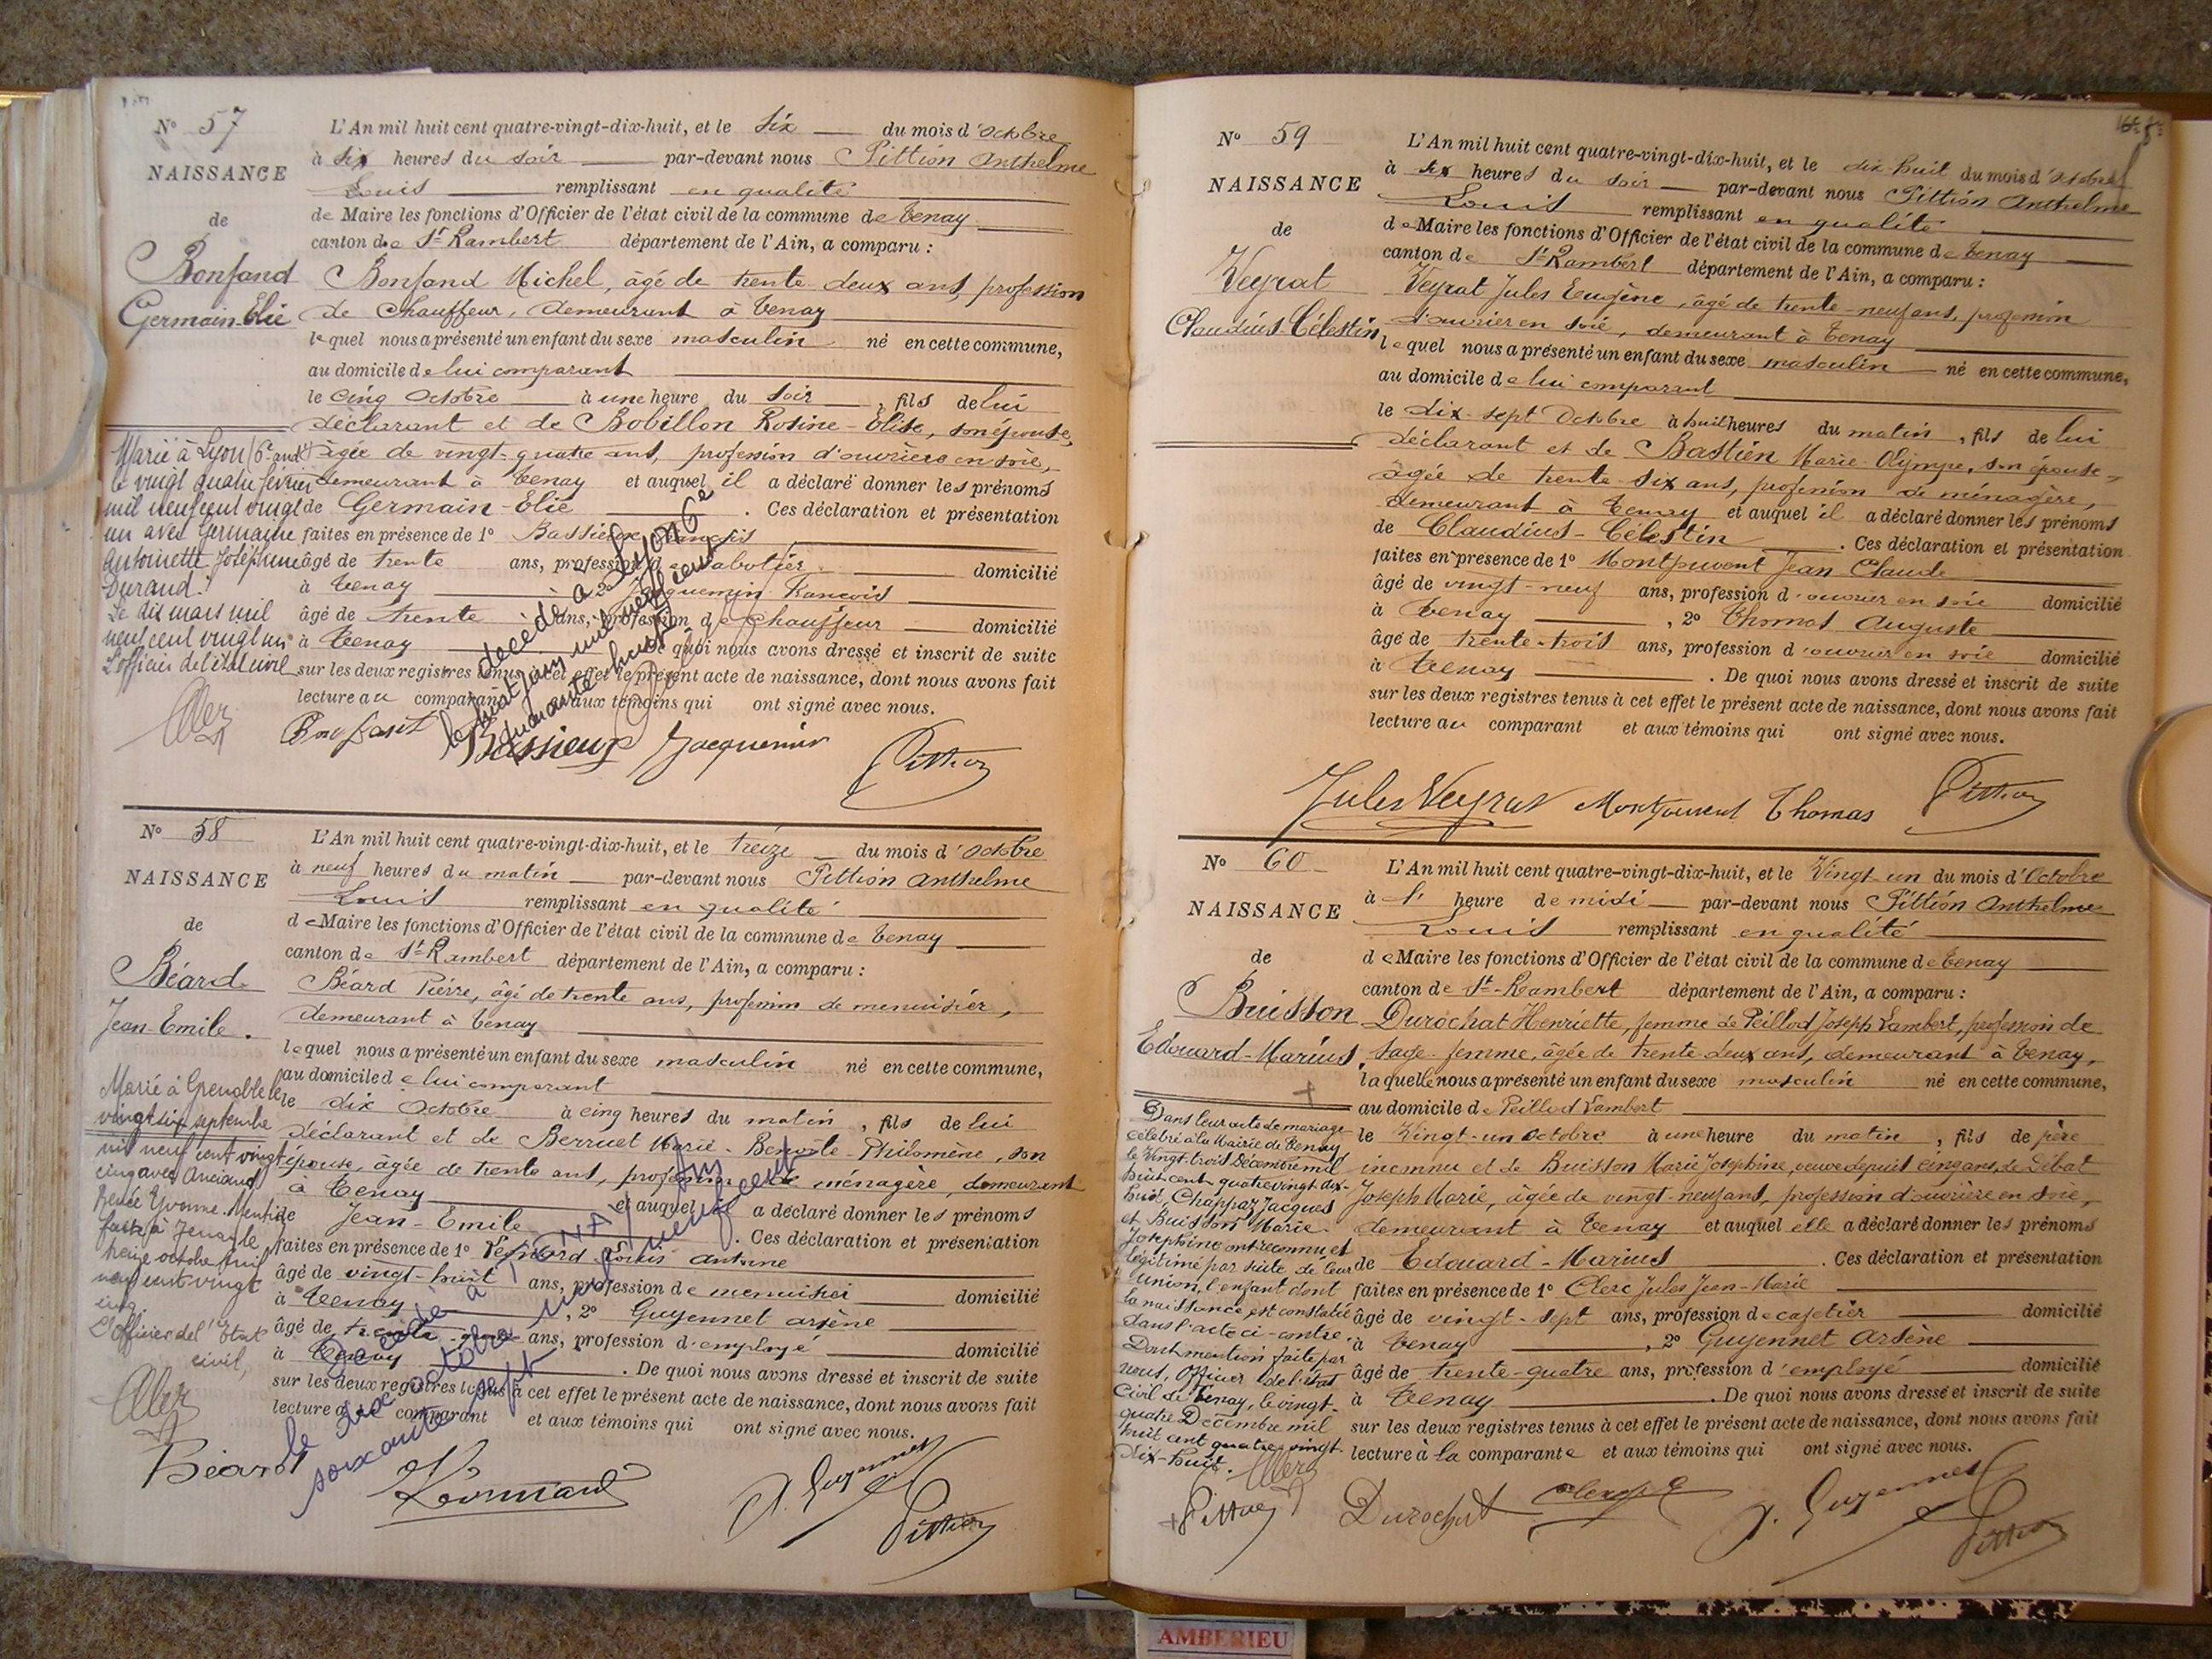 N° 57
NAISSANCE
de
Bonfand
Germain-Elie
L'An mil huit cent quatre-vingt-dix-huit, et le six du mois d'Octobre
à six heures du soir par-devant nous Pittion Anthelme
Louis remplissant en qualité
de Maire les fonctions d'Officier de l'état civil de la commune de Tenay
canton de St Rambert département de l'Ain, a comparu :
Bonfand Michel, âgé de trente deux ans, profession
de chauffeur, demeurant à Tenay
lequel nous a présenté un enfant du sexe masculin né en cette commune,
au domicile de lui comparant
le cinq Octobre à une heure du soir, fils de lui
déclarant et de Bobillon Rosine-Elise, son épouse,
âgée de vingt-quatre ans, profession d'ouvrière en soie,
demeurant à Tenay et auquel il a déclaré donner les prénoms
de Germain-Elie. Ces déclaration et présentation
faites en présence de 1° Bassieux
âgé de trente ans, profession de sabotier domicilié
à Tenay, 2° Jacquemin François
âgé de trente ans, profession de chauffeur domicilié
à Tenay. De quoi nous avons dressé et inscrit de suite
sur les deux registres tenus à cet effet le présent acte de naissance, dont nous avons fait
lecture au comparant et aux témoins qui ont signé avec nous.
Bassieux Jacquemin Pittion
Marié à Lyon (6e arrdt)
le vingt quatre février
mil neuf cent vingt
un avec Germaine
Antoinette Joséphine
Durand.
Le dix mars mil
neuf cent vingt un
L'officier de l'état civil
décédé à Lyon 6e
le huit juin mil neuf cent
quarante huit
N° 58
NAISSANCE
de
Béard
Jean-Emile.
L'An mil huit cent quatre-vingt-dix-huit, et le treize du mois d'Octobre
à neuf heures du matin par-devant nous Pittion Anthelme
Louis remplissant en qualité
de Maire les fonctions d'Officier de l'état civil de la commune de Tenay
canton de St Rambert département de l'Ain, a comparu :
Béard Pierre, âgé de trente ans, profession de menuisier,
demeurant à Tenay
lequel nous a présenté un enfant du sexe masculin né en cette commune,
au domicile de lui comparant
le dix Octobre à cinq heures du matin, fils de lui
déclarant et de Berruet Marie-Benoîte-Philomène, son
épouse, âgée de trente ans, profession de ménagère, demeurant
à Tenay et auquel il a déclaré donner les prénoms
de Jean-Emile. Ces déclaration et présentation
faites en présence de 1° Louis Antoine
âgé de vingt-huit ans, profession de menuisier domicilié
à Tenay, 2° Guyennet Arsène
âgé de trente- ans, profession d'employé domicilié
à Tenay. De quoi nous avons dressé et inscrit de suite
sur les deux registres tenus à cet effet le présent acte de naissance, dont nous avons fait
lecture au comparant et aux témoins qui ont signé avec nous.
Béard A. Guyennet Pittion
Marié à Grenoble le
vingt six septembre
mil neuf cent vingt
cinq avec Anciaud
Renée Yvonne. Mention
faite à Tenay le
treize octobre mil
neuf cent vingt
cinq.
L'Officier de l'Etat
civil,
Décédé à TENAY
le dix octobre mil neuf cent
soixante sept
N° 59
NAISSANCE
de
Veyrat
Claudius-Célestin
L'An mil huit cent quatre-vingt-dix-huit, et le dix huit du mois d'Octobre
à six heures du soir par-devant nous Pittion Anthelme
Louis remplissant en qualité
de Maire les fonctions d'Officier de l'état civil de la commune de Tenay
canton de St Rambert département de l'Ain, a comparu :
Veyrat Jules Eugène, âgé de trente-neuf ans, profession
d'ouvrier en soie, demeurant à Tenay
lequel nous a présenté un enfant du sexe masculin né en cette commune,
au domicile de lui comparant
le dix-sept Octobre à huit heures du matin, fils de lui
déclarant et de Bastien Marie-Olympe, son épouse,
âgée de trente-six ans, profession de ménagère,
demeurant à Tenay et auquel il a déclaré donner les prénoms
de Claudius-Célestin. Ces déclaration et présentation
faites en présence de 1° Montpuvent Jean Claude
âgé de vingt-neuf ans, profession d'ouvrier en soie domicilié
à Tenay, 2° Thomas Auguste
âgé de trente-trois ans, profession d'ouvrier en soie domicilié
à Tenay. De quoi nous avons dressé et inscrit de suite
sur les deux registres tenus à cet effet le présent acte de naissance, dont nous avons fait
lecture au comparant et aux témoins qui ont signé avec nous.
Jules Veyrat Montpuvent Thomas Pittion
N° 60
NAISSANCE
de
Buisson
Edouard-Marius
L'An mil huit cent quatre-vingt-dix-huit, et le Vingt-un du mois d'Octobre
à 1 heure de midi par-devant nous Pittion Anthelme
Louis remplissant en qualité
de Maire les fonctions d'Officier de l'état civil de la commune de Tenay
canton de St-Rambert département de l'Ain, a comparu :
Durochat Henriette, femme de Peillod Joseph Lambert, profession de
sage-femme, âgée de trente-deux ans, demeurant à Tenay,
laquelle nous a présenté un enfant du sexe masculin né en cette commune,
au domicile de Peillod Lambert
le Vingt-un Octobre à une heure du matin, fils de père
inconnu et de Buisson Marie Joséphine, veuve depuis cinq ans, de Débat
Joseph Marie, âgée de vingt-neuf ans, profession d'ouvrière en soie,
demeurant à Tenay et auquel elle a déclaré donner les prénoms
de Edouard-Marius. Ces déclaration et présentation
faites en présence de 1° Clerc Jules Jean-Marie
âgé de vingt-sept ans, profession de cafetier domicilié
à Tenay, 2° Guyennet Arsène
âgé de trente-quatre ans, profession d'employé domicilié
à Tenay. De quoi nous avons dressé et inscrit de suite
sur les deux registres tenus à cet effet le présent acte de naissance, dont nous avons fait
lecture à la comparante et aux témoins qui ont signé avec nous.
Durochat A. Guyennet Pittion
Dans leur acte de mariage
célébré à la Mairie de Tenay
le Vingt-trois Décembre mil
huit cent quatre vingt dix-
huit, Chappaz Jacques
et Buisson Marie-
Joséphine ont reconnu et
légitimé par suite de leur
union, l'enfant dont
la naissance est constatée
dans l'acte ci-contre.
Dont mention faite par
nous, Officier de l'état
Civil de Tenay, le vingt-
quatre Décembre mil
huit cent quatre vingt-
dix-huit.
Pittion
AMBERIEU